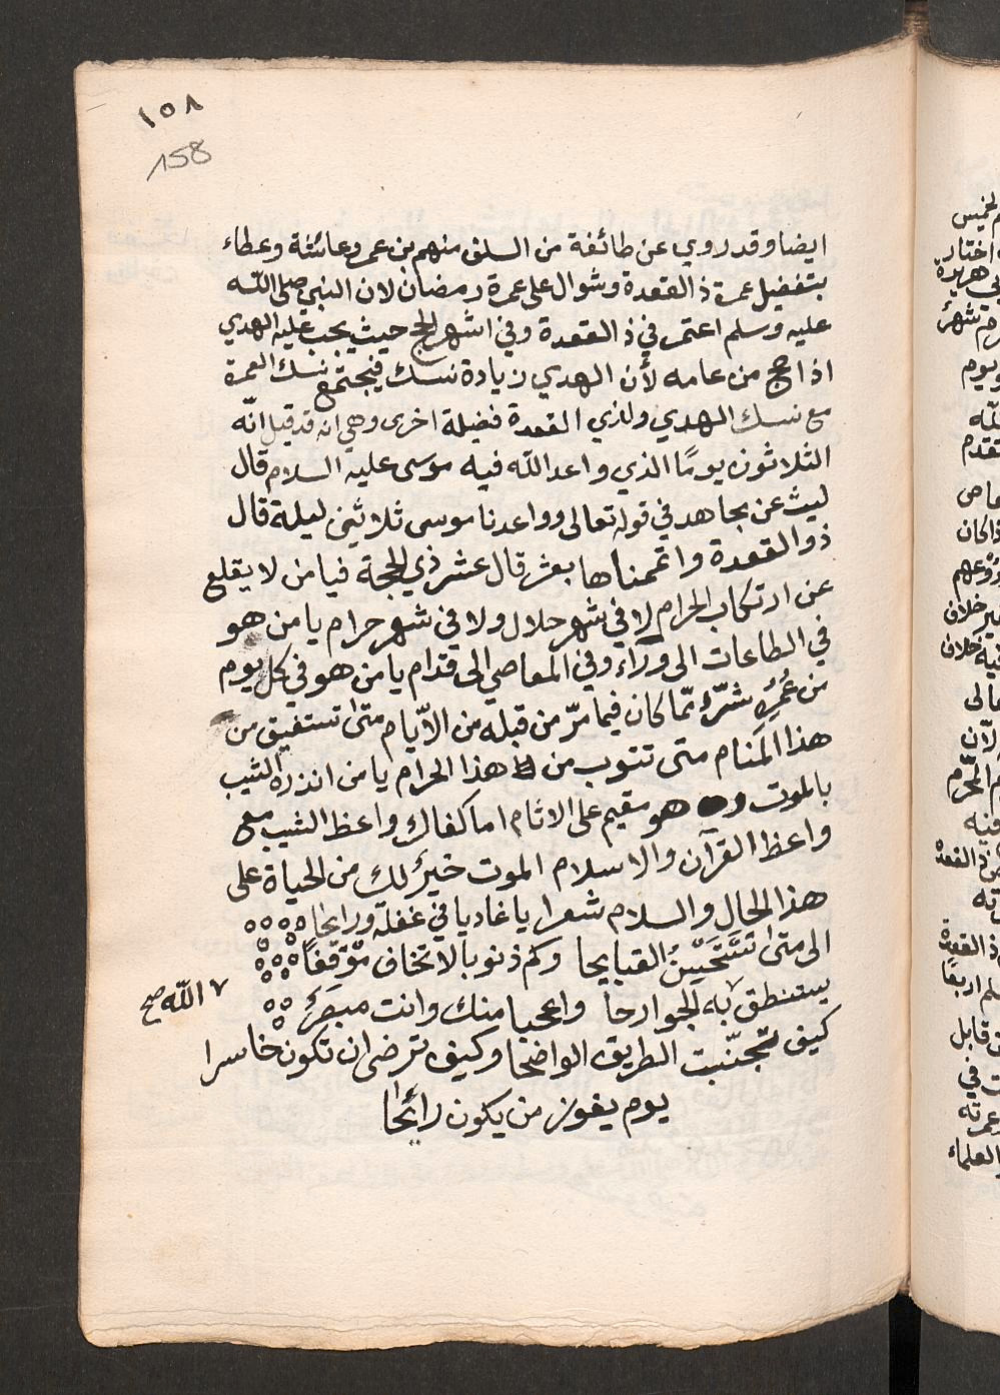 ١٥٨
158
ايضا وقد روي عن طائفة من السلف منهم بن عمر وعائشة وعطاء
بتفضيل عمرة ذالقعدة وشوال على عمرة رمضان لان النبي صلى الله
عليه وسلم اعتمر في ذالقعدة وفي اشهر الحج حيث يجب عليه الهدي
اذا حج من عامه لأن الهدي زيادة نسك فيجتمع نسك العمرة
مع نسك الهدي ولذي القعدة فضيلة اخرى وهي انه قد قيل انّه
الثلاثون يومًا الذي واعد اللّه فيه موسى عليه السلام قال
ليث عن مجاهد في قوله تعالى وواعدنا موسى ثلاثين ليلة قال
ذو القعدة واتممناها بعشر قال عشر ذي الحجة فيامن لا يقلع
عن ارتكاب الحرام لا في شهر حلال ولا في شهر حرام يا من هو
في الطاعات الى ورآء وفي المعاصي الى قدام يا من هو في كل يوم
من عُمُرِه شرّ ممّا كان فيما مرّ من قبله من الأيام متى تستفيق من
هذا المنام متى تتوب من هذا الحرام يا من انذره الشيب
بالموت وهو مقيم على الاثام اما كفاك واعظ الشيب مع
واعظ القرآن والاسلام الموت خيرٌ لك من الحياة على
هذا الحال والسلام شعرا يا غاديا في غفلة ورائحا
الى متى تستحسن القبايحا وكم ذنوبا لا تخاف موقفاً
يستنطق به الجوارحا واعجبا منك وانت مبصر
٧ الله صح
كيف تجنّبت الطريق الواضحا وكيف ترضى ان تكون خاسرا
يوم يفوز من يكون رائحا